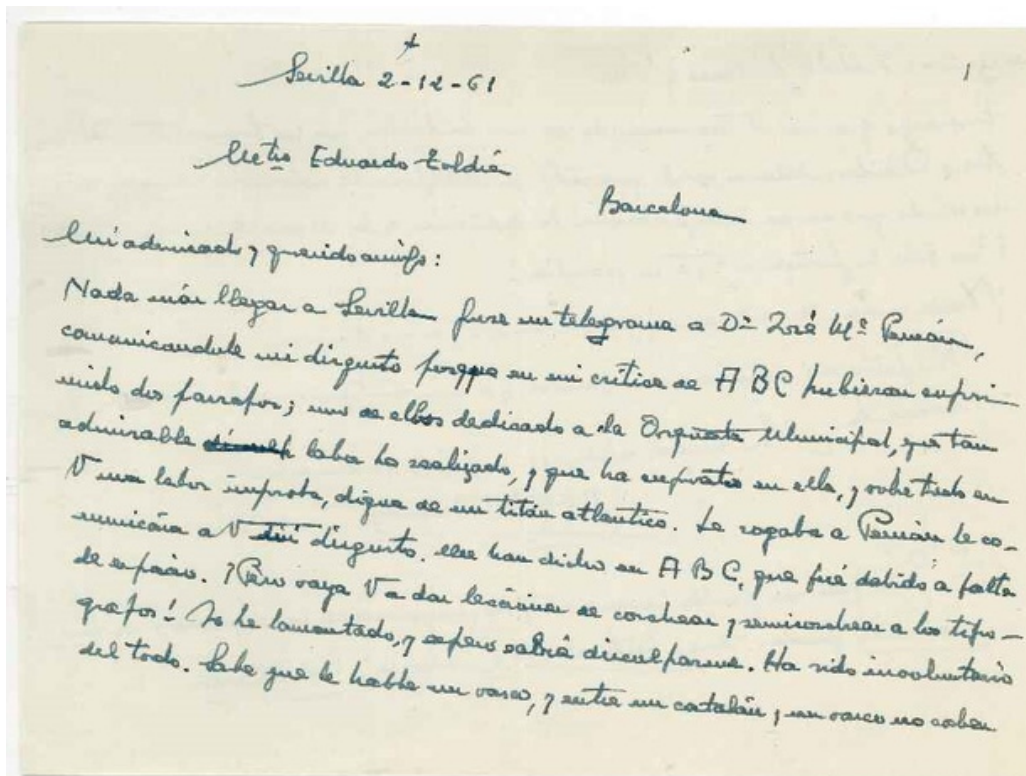 +
Sevilla 2-12-61
1
Mtro Eduardo Toldrá
Barcelona
Mi admirado y querido amigo:
Nada más llegar a Sevilla puse un telegrama a Dn José Mª Pemán,
comunicandole mi disgusto porque en mi crítica de A B C hubieran supri-
mido dos parrafos; uno de ellos dedicado a la Orquesta Municipal, que tan
admirable labor ha realizado, y que ha supuesto en ella, y sobre todo en
V una labor improba, digna de un titán atlantico. Le rogaba a Pemán le co-
municára a V mi disgusto. Me han dicho en A B C, que fué debido a falta
de espacio. ¡Pero vaya V a dar lecciones de corcheas y semicorcheas a los tipo-
grafos! Lo he lamentado, y espero sabrá disculparme. Ha sido involuntario
del todo. Sabe que le habla un vasco, y entre un catalán y un vasco no caben